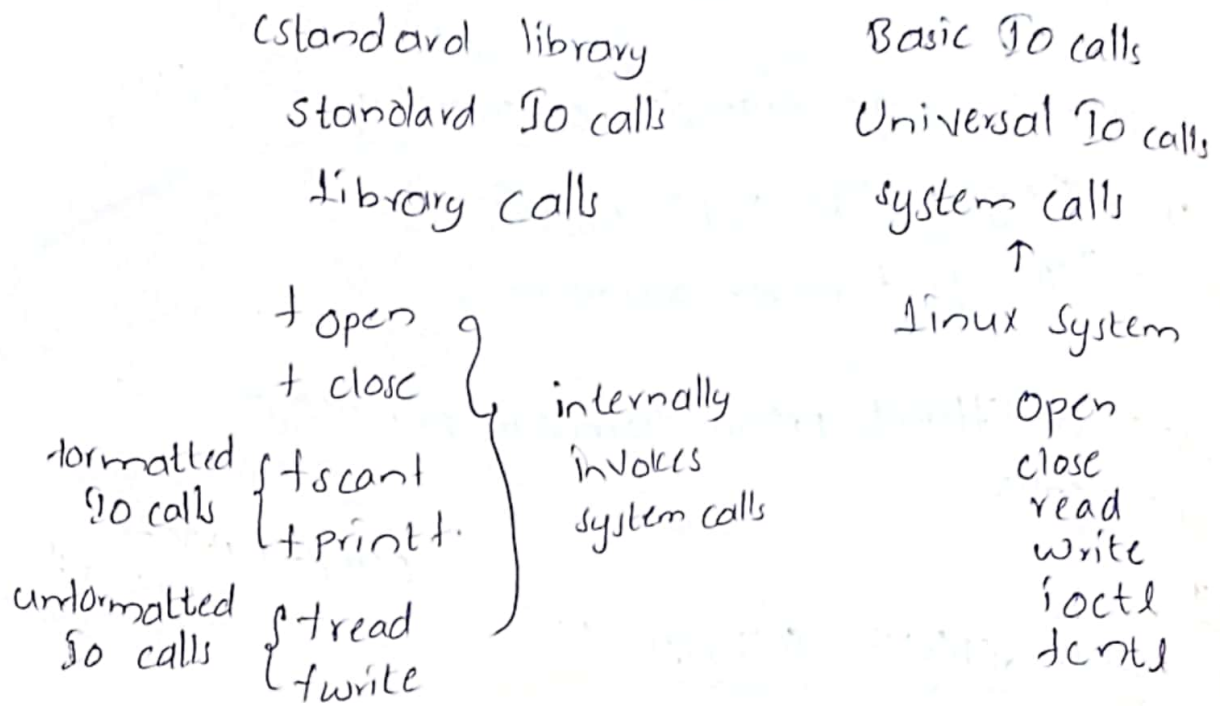 Cstandard library
Standard IO calls
Library calls
fopen
fclose
formatted
IO calls
fscanf
fprintf.
unformatted
IO calls
fread
fwrite
internally
invokes
system calls
Basic IO calls
Universal IO calls
system calls
↑
Linux System
open
close
read
write
ioctl
fcntl